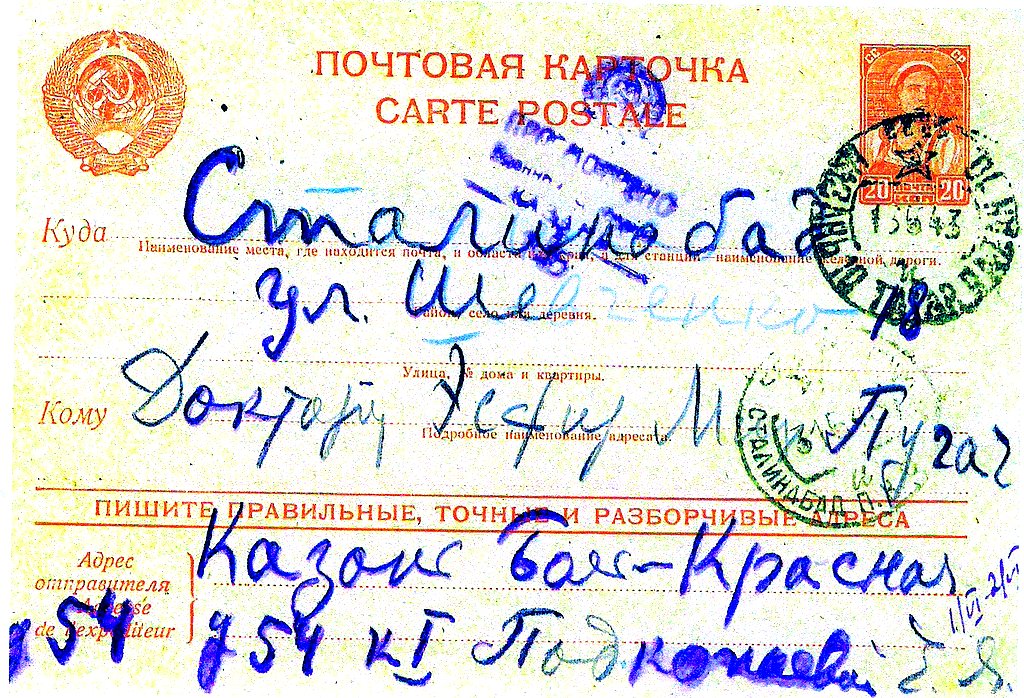 ПОЧТОВАЯ КАРТОЧКА
CARTE POSTALE
СС СР
20 ПОЧТА 20
Куда Сталинобад
Наименование места, где находится почта, и области или края, а для станций наименование железной дороги.
13 6 43
ул. Шевченко 18
Район, село или деревня.
Улица, № дома и квартиры.
Кому Доктору Пугач
Подробное наименование адресата.
СТАЛИНАБАД
ПИШИТЕ ПРАВИЛЬНЫЕ, ТОЧНЫЕ И РАЗБОРЧИВЫЕ АДРЕСА
Адрес отправителя
Adresse de l'expéditeur
Казань Бол-Красная
д 54 д 54 к I Подконаевой